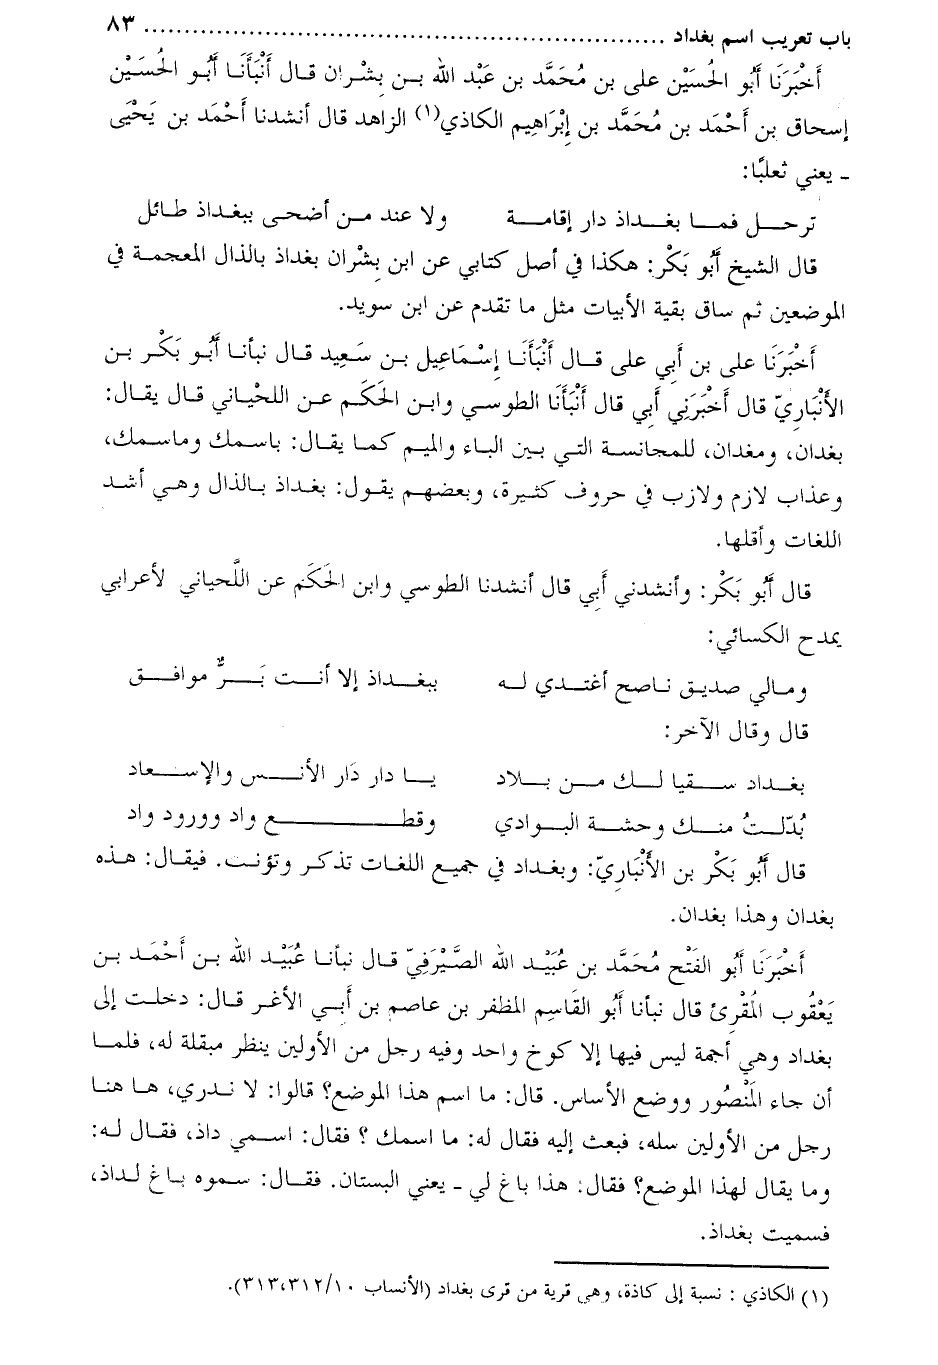 باب تعريب اسم بغداد ........................................................................ ٨٣
أَخْبَرَنَا أَبُو الحُسَيْن علي بن مُحَمَّد بن عَبْد الله بـن بِشْران قال أَنْبَأَنَا أَبُو الحُسَيْن
إسحاق بن أَحْمَد بن مُحَمَّد بن إِبْرَاهِيم الكاذي(١) الزاهد قال أنشدنا أَحْمَد بن يَحْيَى
ـ يعني ثعلبًا:
ترحـل فمـا بغـداذ دار إقامـة ولا عند مـن أضحـى ببغـداذ طـائل
قال الشيخ أَبُو بَكْر: هكذا في أصل كتابي عن ابن بِشْران بغداذ بالذال المعجمـة في
الموضعين ثم ساق بقية الأبيات مثل ما تقدم عن ابن سويد.
أَخْبَرَنَا علي بن أبي علي قـال أَنْبَأَنَا إِسْمَاعِيل بـن سَـعِيد قـال نبأنـا أَبُـو بَكْـر بـن
الأَنْبَارِيّ قال أَخْبَرَنِي أَبِي قال أَنْبَأَنَا الطوسي وابـن الحَكَـم عـن اللحْيـاني قـال يقـال:
بغدان، ومغدان، للمجانسة التي بـين البـاء والميـم كمـا يقـال: باسمك وماسمك،
وعذاب لازم ولازب في حروف كثيرة، وبعضهـم يقـول: بغـداذ بـالذال وهـي أشد
اللغات وأقلها.
قال أَبُو بَكْر: وأنشدني أَبِي قال أنشدنا الطوسي وابن الحَكَم عن اللَّحياني لأعرابي
يمدح الكسائي:
ومـالي صديـق نـاصح أغتـدي لـه ببغـداذ إلا أنـت بَـرٌّ موافـق
قال وقال الآخر:
بغـداد سـقيا لـك مـن بـلاد يـا دار دَار الأنـس والإسـعاد
بُدّلـتُ منـك وحشـة البـوادي وقطـع واد وورود واد
قال أَبُو بَكْر بن الأَنْبَارِيّ: وبغـداد في جميـع اللغـات تذكـر وتؤنـث. فيقـال: هـذه
بغدان وهذا بغدان.
أَخْبَرَنَا أَبُو الفَتْح مُحَمَّد بن عُبَيْـد الله الصَّيْرَفِيّ قـال نبأنـا عُبَيْـد الله بـن أَحْمَـد بـن
يَعْقُوب المُقْرِئ قال نبأنا أَبُو القَاسِم المظفر بن عاصم بن أَبِـي الأغـر قـال: دخلـت إلى
بغداد وهي أجمة ليس فيها إلا كوخ واحد وفيه رجل من الأولين ينظر مبقلة له، فلمـا
أن جاء المَنْصُور ووضع الأساس. قال: ما اسم هذا الموضع؟ قالوا: لا نـدري، هـا هنـا
رجل من الأولين سله، فبعث إليه فقال له: ما اسمك ؟ فقال: اسـمي داذ، فقـال لـه:
وما يقال لهذا الموضع؟ فقال: هذا باغ لي ـ يعني البستان. فقـال: سمـوه بـاغ لـداذ،
فسميت بغداذ.
(١) الكاذي : نسبة إلى كاذة، وهي قرية من قرى بغداد (الأنساب ٣١٣،٣١٢/١٠).